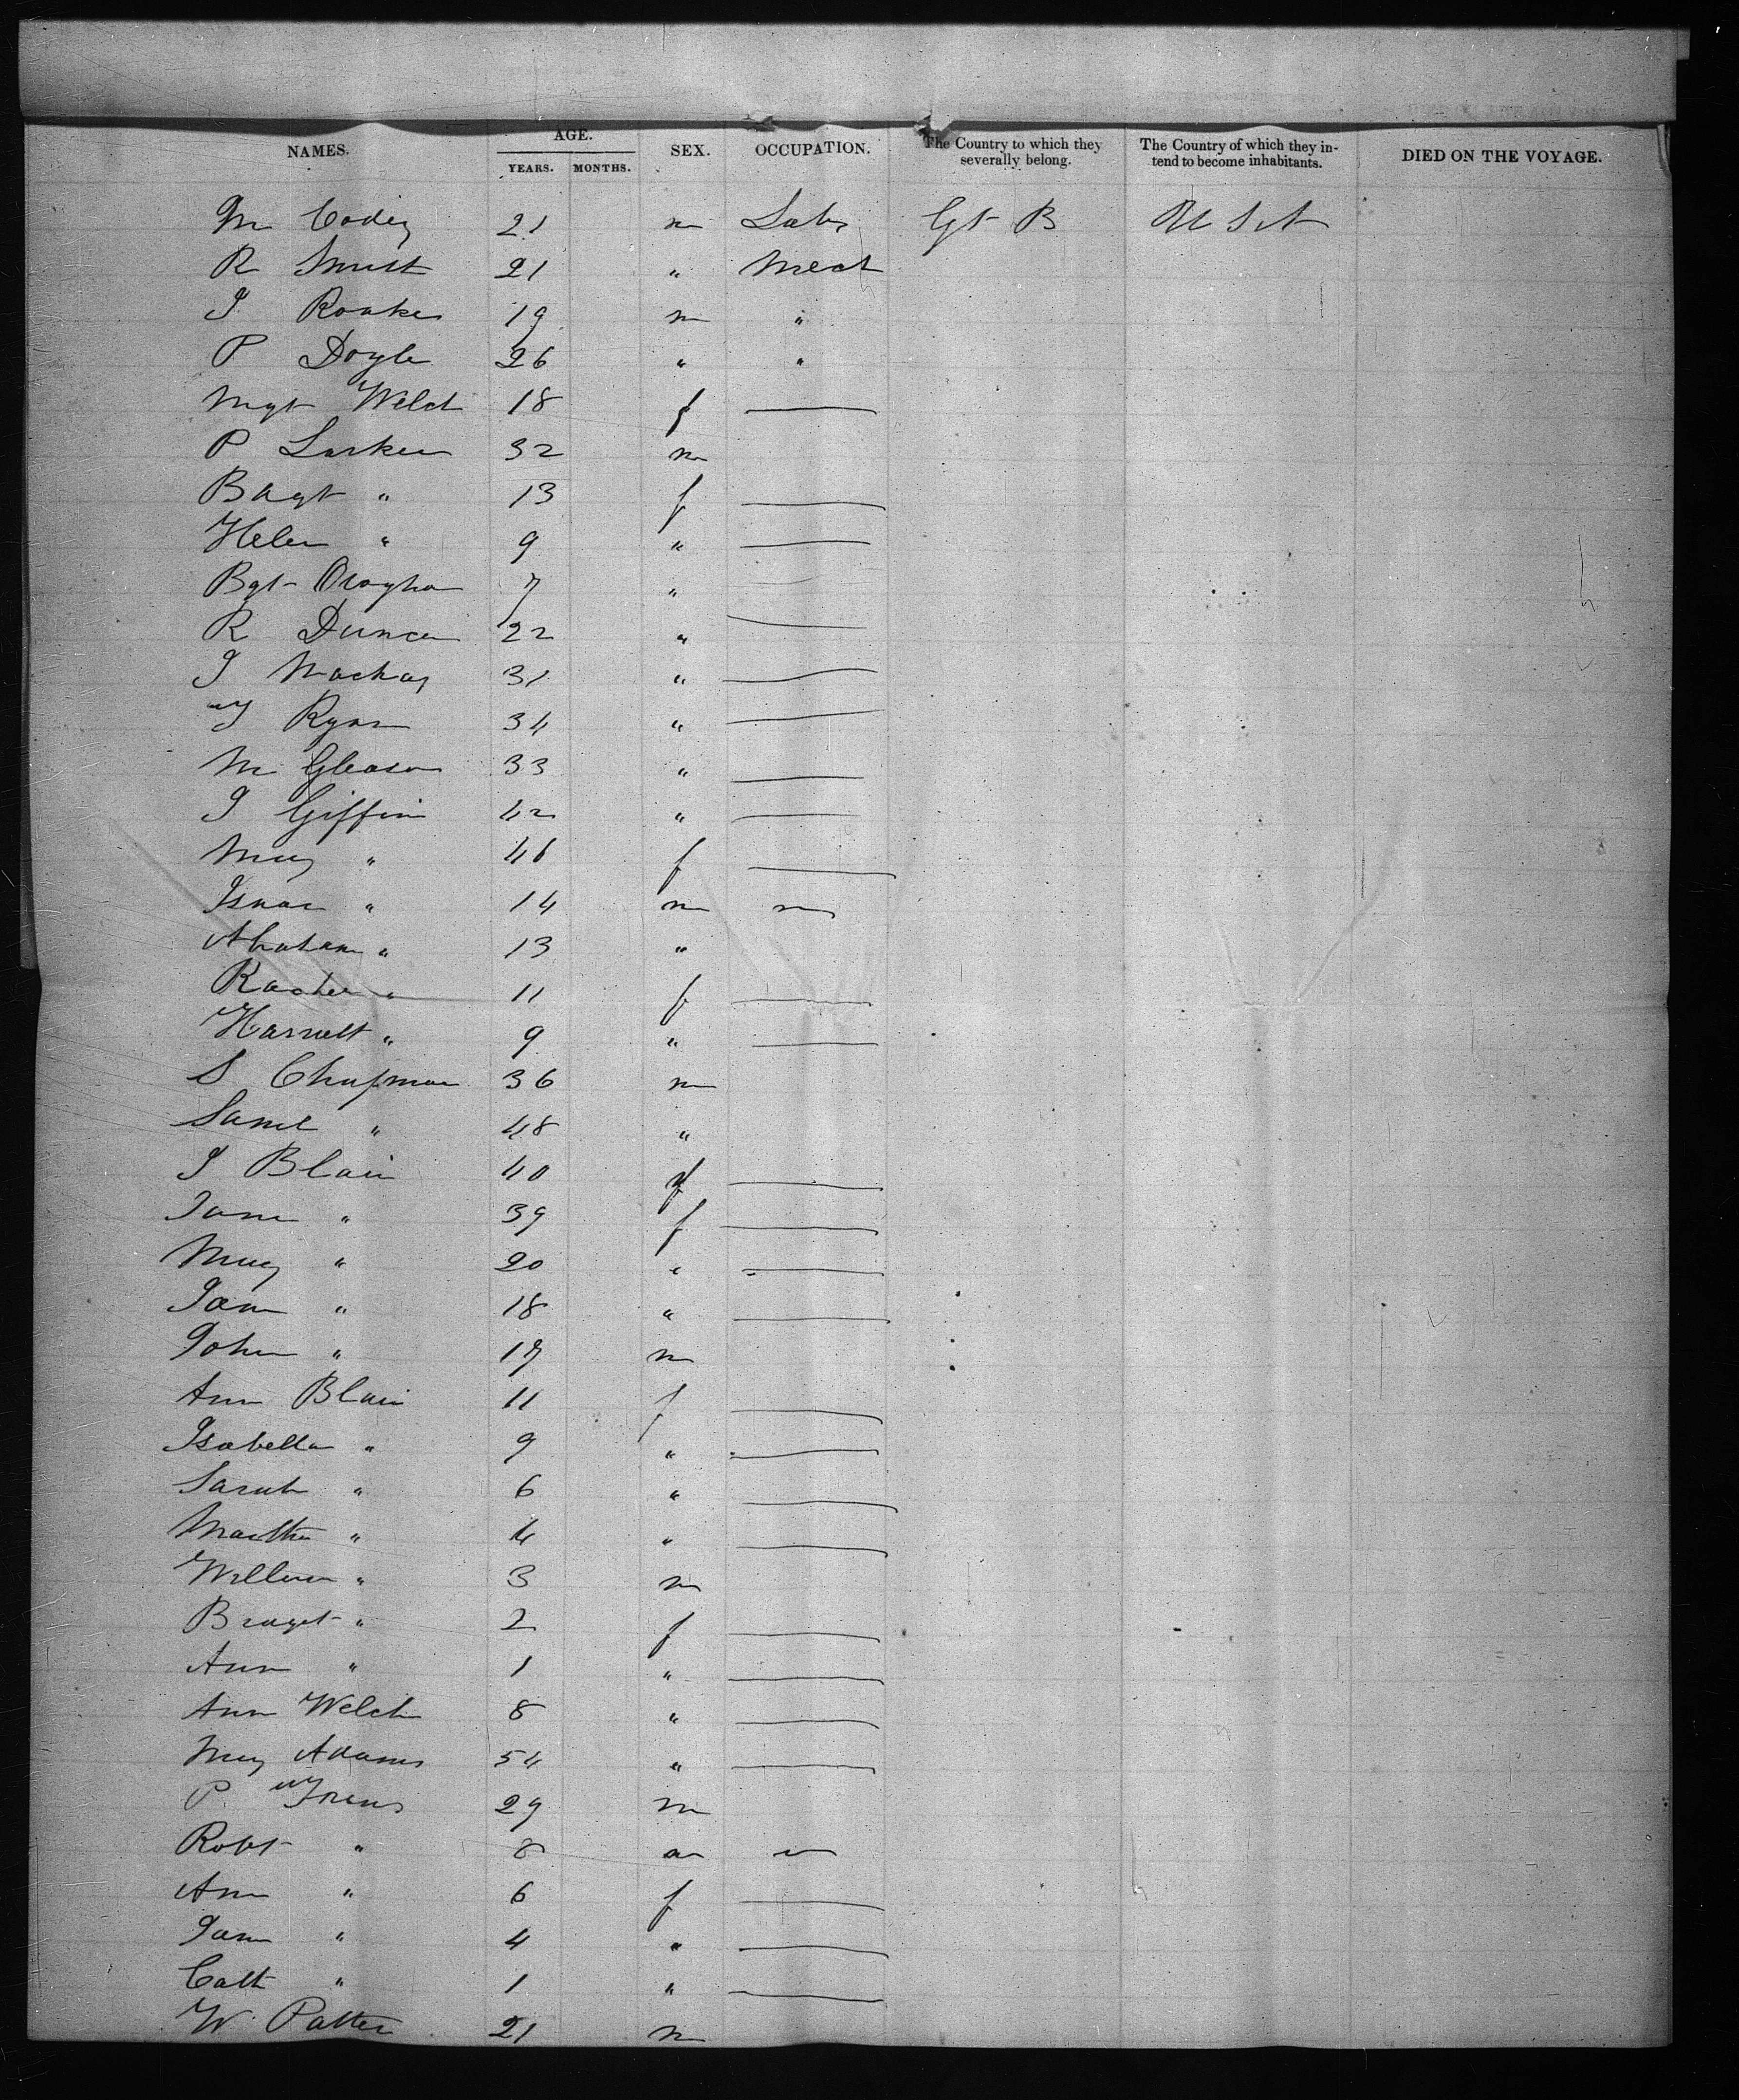 NAMES. AGE. YEARS. MONTHS. SEX. OCCUPATION. The Country to which they severally belong. The Country of which they intend to become inhabitants. DIED ON THE VOYAGE.
M Codey 21 m Labr Gt B U S A
R Smith 21 " Mech
J Roake 19 m "
P Doyle 26 " "
Mgt Welch 18 f
P Larken 32 m
Bagt " 13 f
Helen " 9 "
Bgt 7 "
R Duncan 22 "
J Mackay 31 "
T Ryan 34 "
M Gleason 33 "
J Giffin 42 "
Mary " 46 f
Isaac " 14 m
Abraham " 13 "
Rachel " 11 f
Harriett " 9 "
S Chapman 36 m
Saml " 48 "
J Blair 40 f
Jane " 39 f
Mary " 20 "
Jam " 18 "
John " 17 m
Ann Blair 11 f
Isabella " 9 "
Sarah " 6 "
Martha " 4 "
William " 3 m
Braget " 2 f
Ann " 1 "
Ann Welch 8 "
Mary Adams 54 "
P 29 m
Robt " 8 m
Ann " 6 f
Jam " 4 "
Cath " 1 "
W Patten 21 m